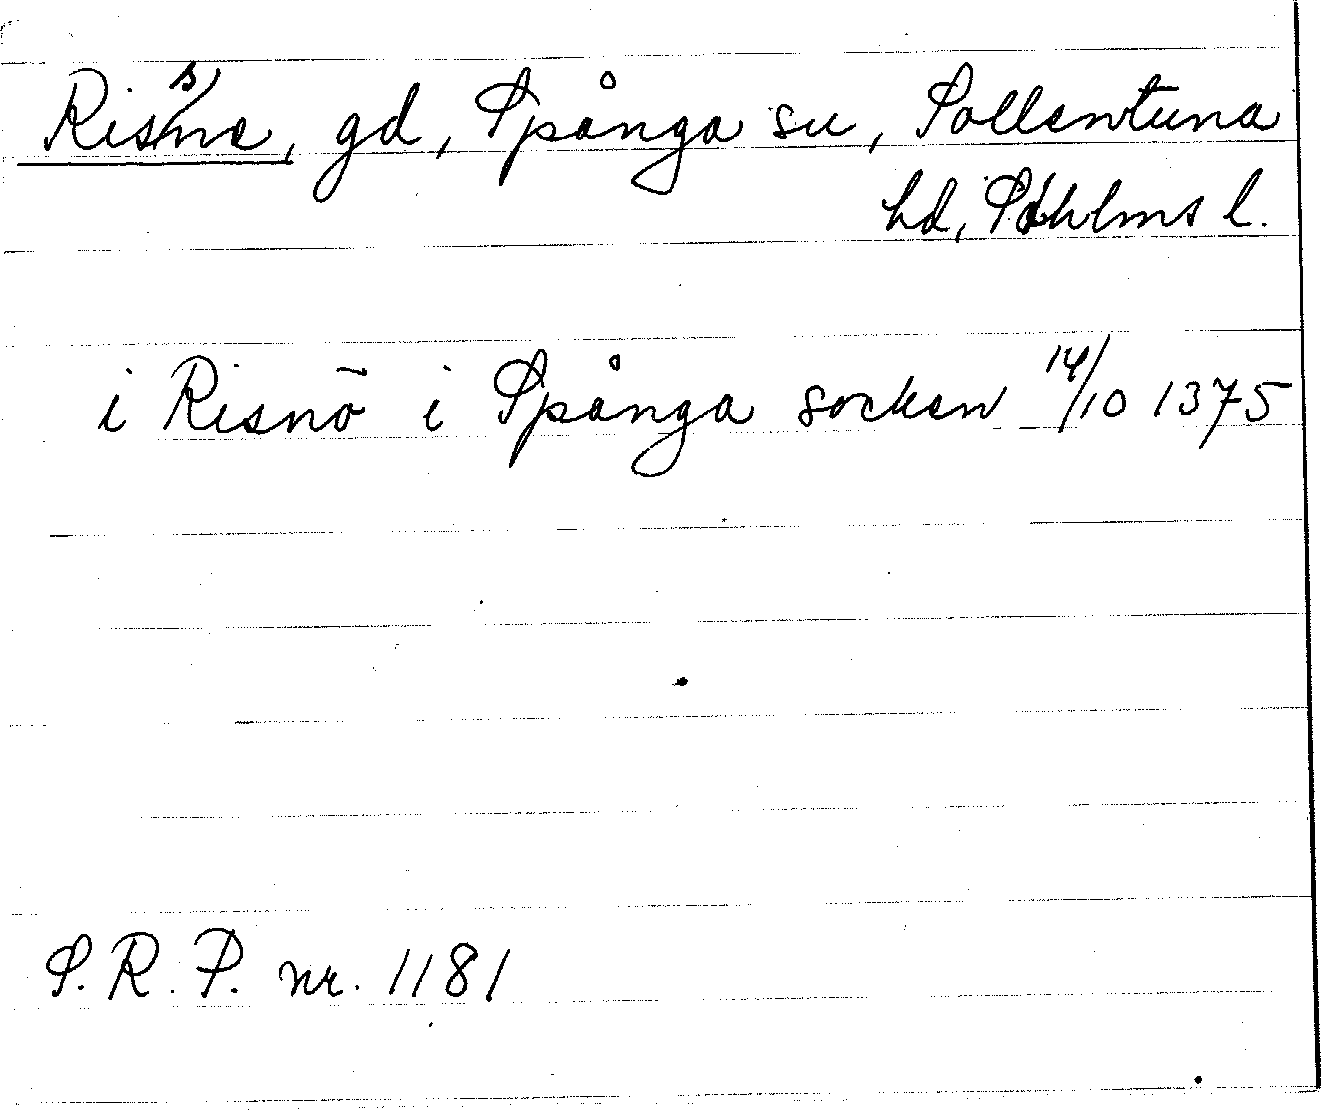 Rissne, gd, Spånga sn, Sollentuna
hd, Sthlms l.
i Risnö i Spånga socken 14/10 1375
S.R.P. nr. 1181